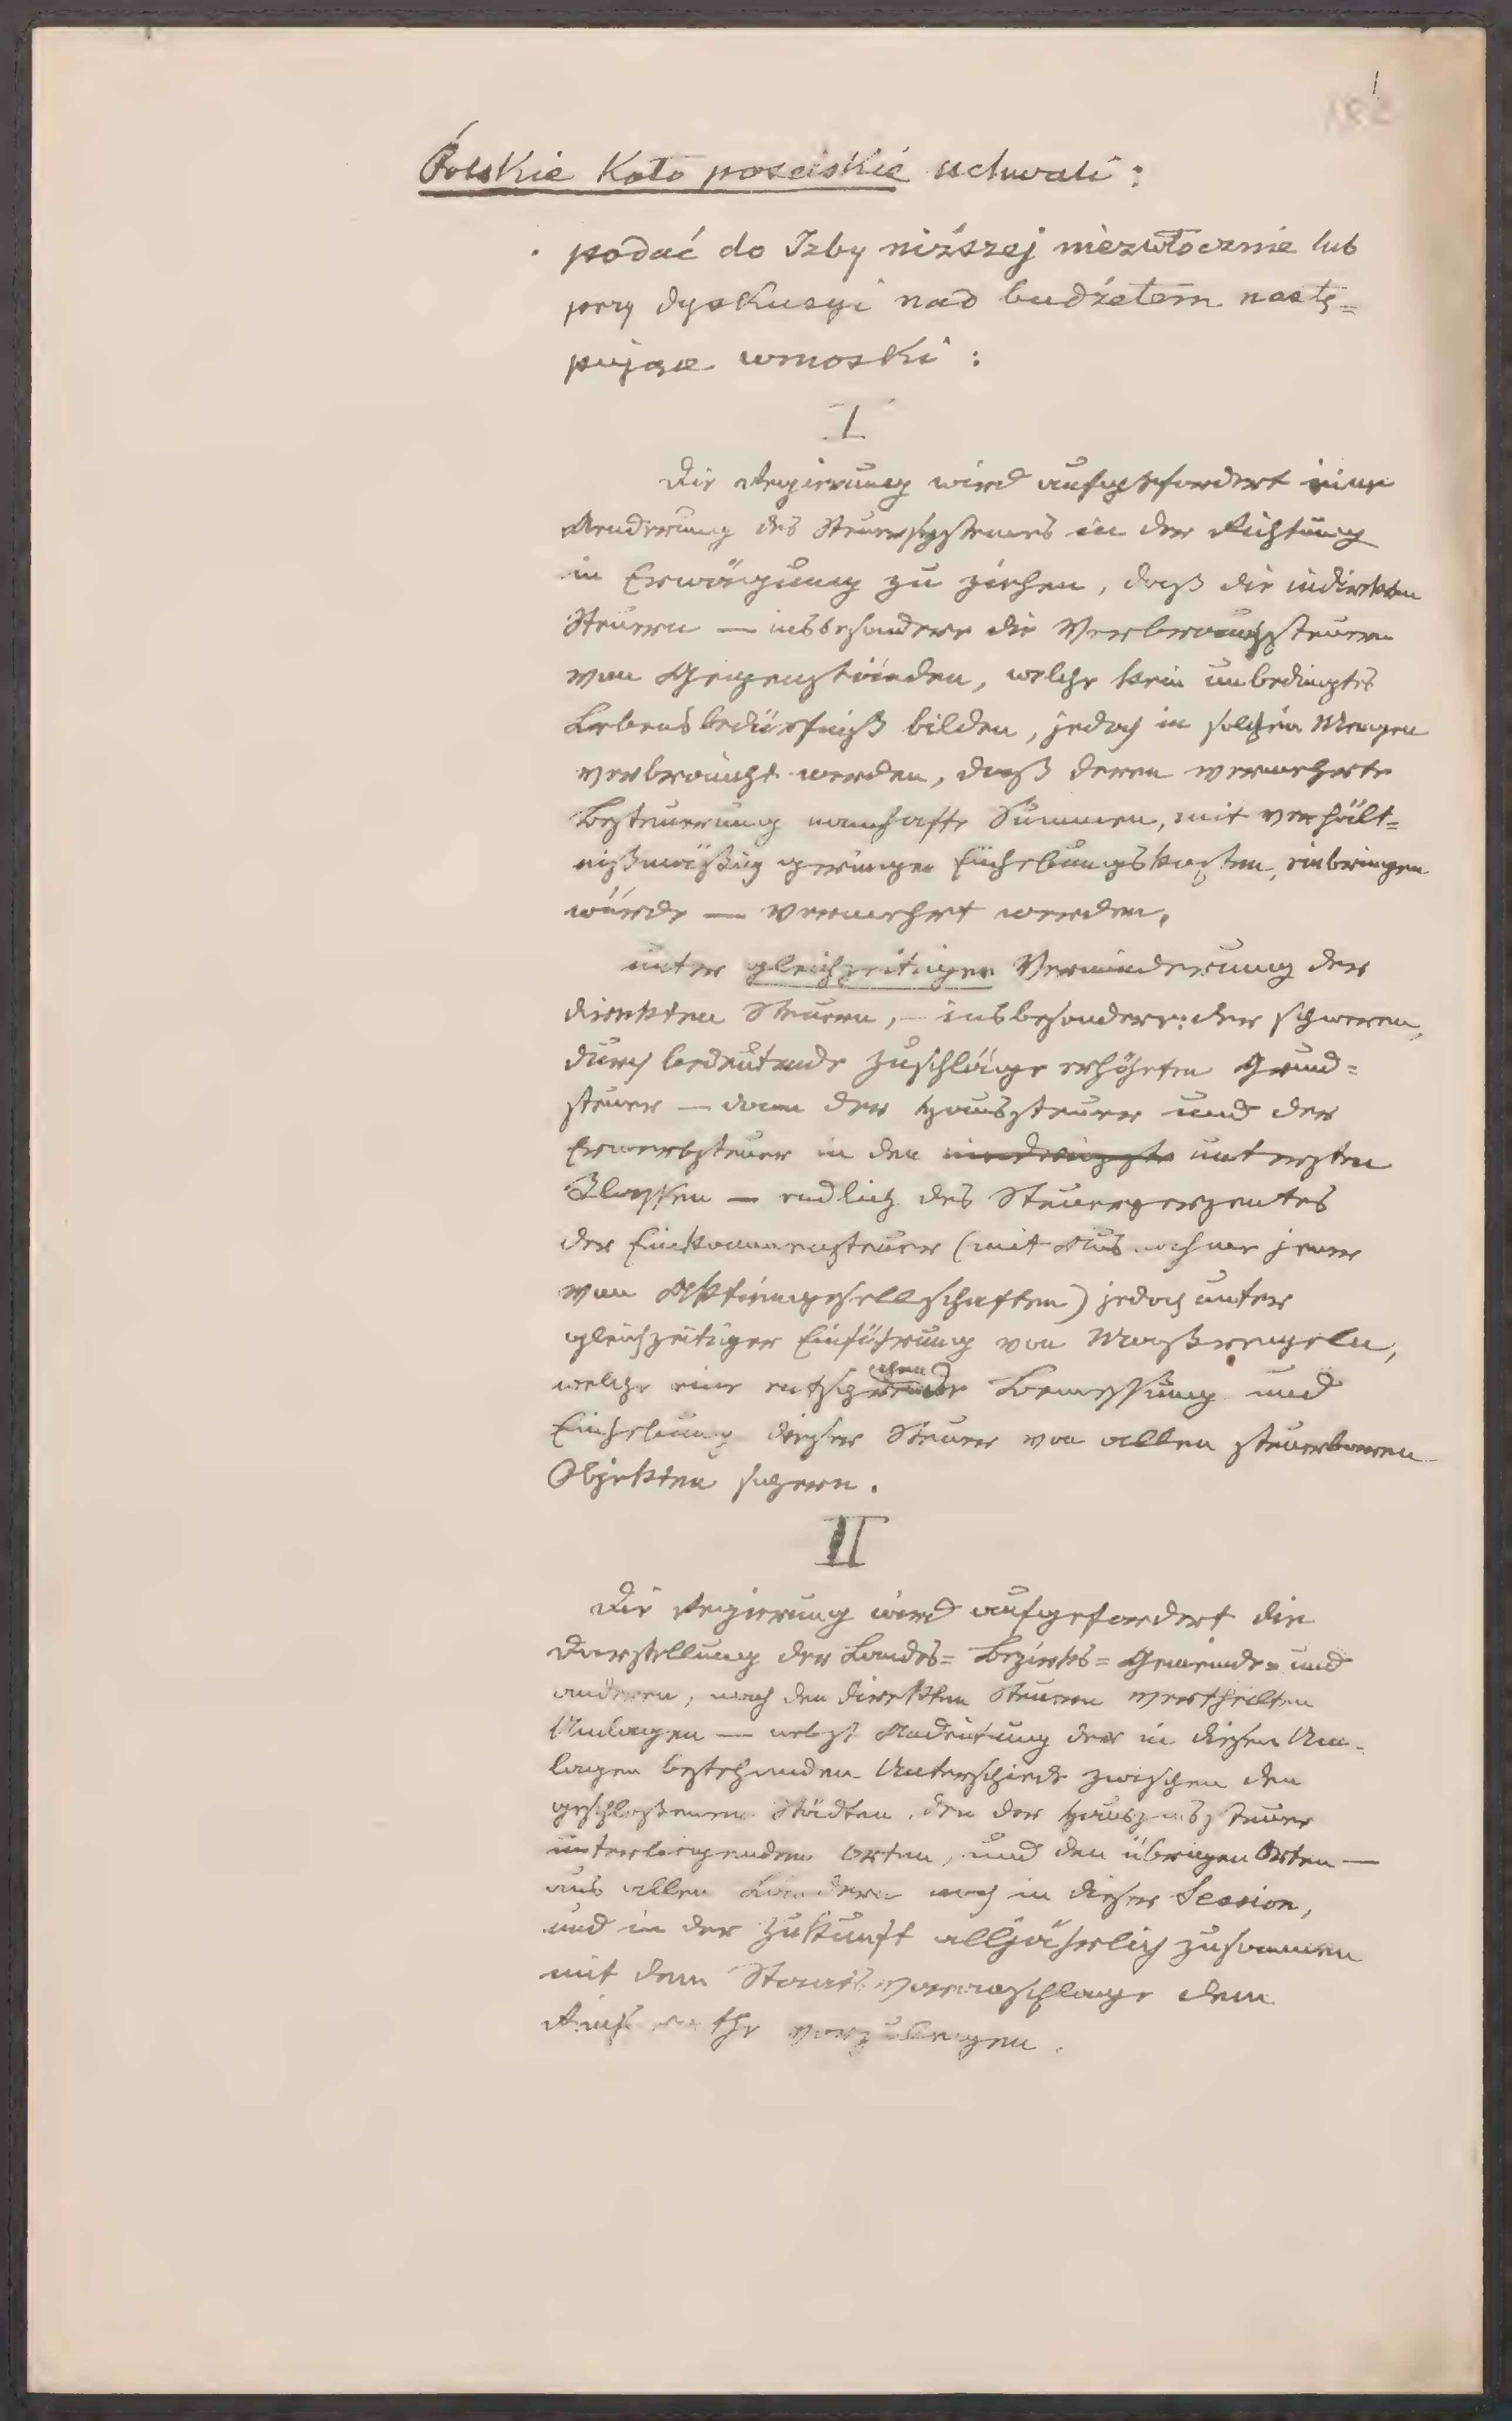 1
182
Polskie Koło poselskie uchwali:
podać do Izby niższej niezwłocznie lub
przy dyskusyi nad budżetem nastę=
pujące wnioski:
I
Die Regierung wird aufgefordert eine
Aenderung des Steuersystemes in der Richtung
in Erwägung zu ziehen, daß die indirekten
Steuern — insbesondere die Verbrauchssteuern
von Gegenständen, welche kein unbedingtes
Lebensbedürfniß bilden, jedoch in solchen Mengen
verbraucht werden, daß deren vermehrte
Besteuerung namhafte Summen, mit verhält=
nißmäßig geringen Einhebungskosten, einbringen
würde — vermehrt werden,
unter gleichzeitiger Verminderung der
direkten Steuern, — insbesondere: der schweren,
durch bedeutende Zuschläge erhöhten Grund=
steuer — dann der Haussteuer und der
Erwerbsteuer in den niedrigste untersten
Klassen — endlich des Steuerperzentes
der Einkommensteuer (mit Ausnahme jener
von Aktiengesellschaften) jedoch unter
gleichzeitiger Einführung von Maßregeln,
welche eine Bemessung und
Einhebung dieser Steuer von allen steuerbaren
Objekten sichern.
II
Die Regierung wird aufgefordert die
Darstellung der Landes= Bezirks= Gemeinde= und
anderen, nach den direkten Steuern vertheilten
Umlagen — nebst Andeutung der in diesen Um-
lagen bestehenden Unterschiede zwischen den
geschlossenen Städten, den der Hauszinssteuer
unterliegenden Orten, und den übrigen Orten —
aus allen Ländern noch in dieser Session,
und in der Zukunft alljährlich zusammen
mit dem Staatsvoranschlage dem
Reichsrathe vorzulegen.